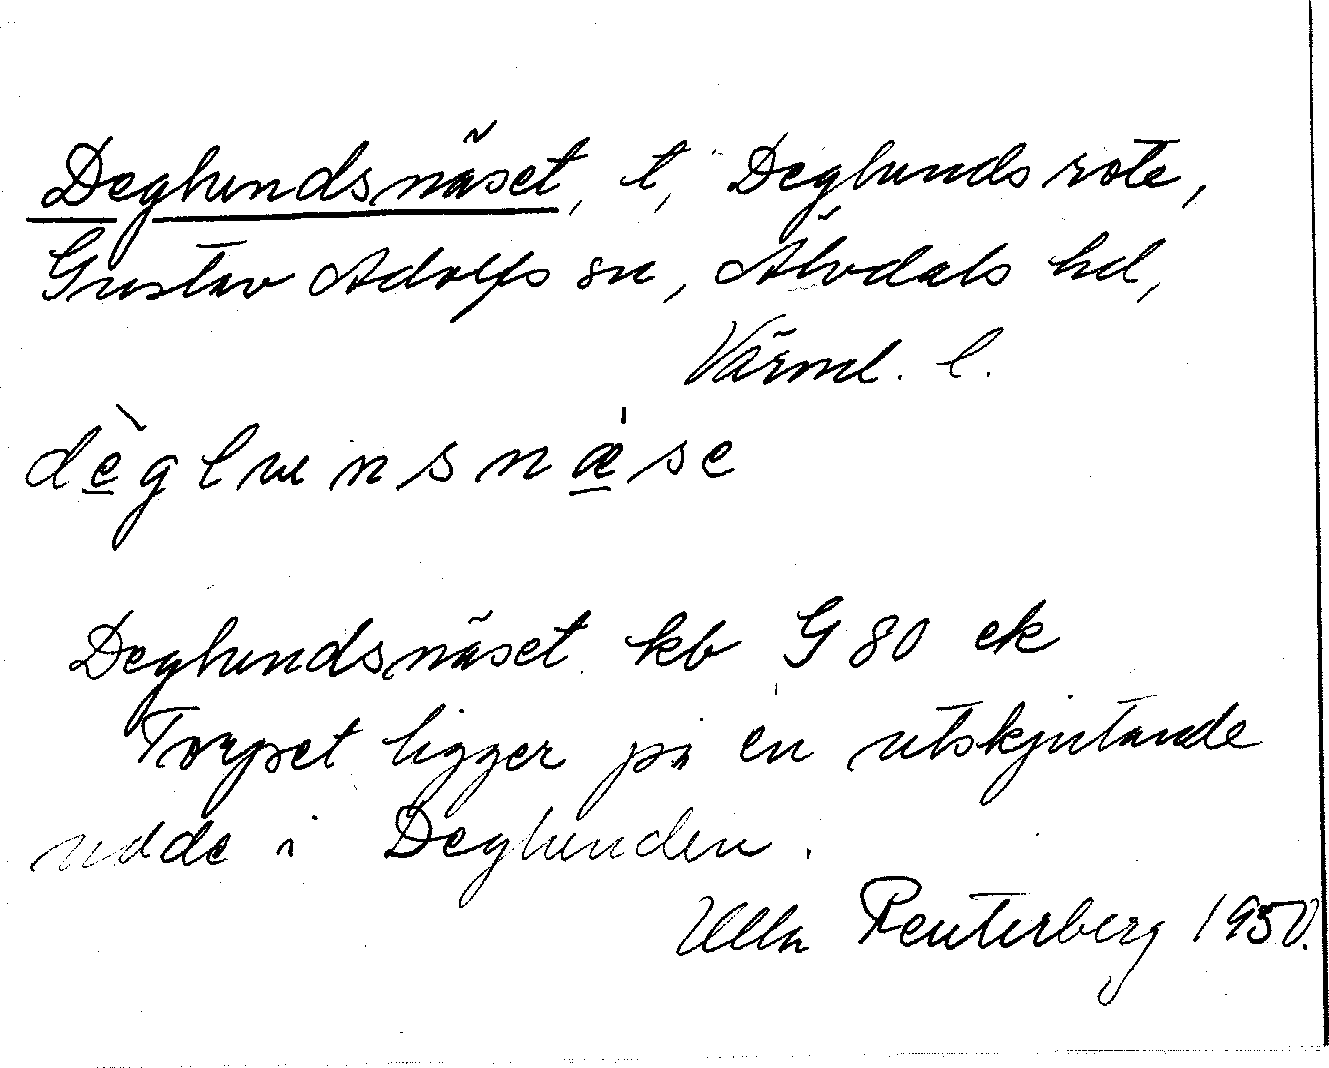 Deglundsnäset, t, Deglunds rote,
Gustav Adolfs sn, Älvdals hd,
Värml. l.
dèglunsnæ̍se
Deglundsnäset kb G 80 ek
Torpet ligger på en utskjutande
udde i Deglunden.
Ulla Reuterberg 1950.